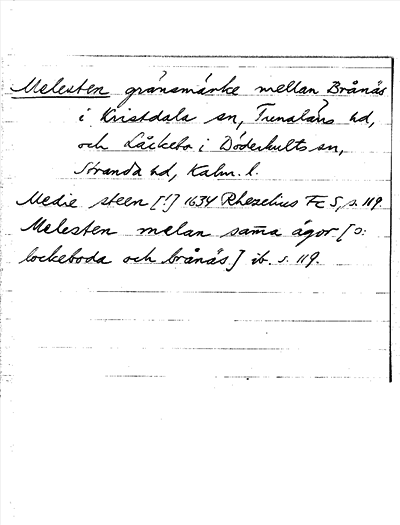 Melesten gränsmärke mellan Brånäs
i Kristdala sn, Tunaläns hd,
och Låckebo i Döderhults sn,
Stranda hd, Kalm. l.
Medie steen [!] 1634 Rhezelius Fc 5, s. 119.
Melesten melan sam̄a ägor [ɔ:
lockeboda och brånäs] ib. s. 119.